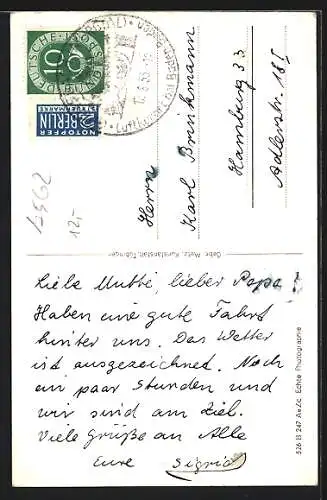 DEUTSCHE BUNDESPOST
10
NOTOPFER
2 BERLIN
STEUERMARKE
L562
12,-
Herrn
Karl Brinkmann
Hamburg 33
Adlerstr. 185
Gebr. Metz, Kunstanstalt, Tübingen
Liebe Mutti, lieber Papa!
Haben eine gute Fahrt
hinter uns. Das Wetter
ist ausgezeichnet. Noch
ein paar Stunden und
wir sind am Ziel.
Viele Grüße an Alle
Eure Sigrid
526 B 247 AeZc. Echte Photographie